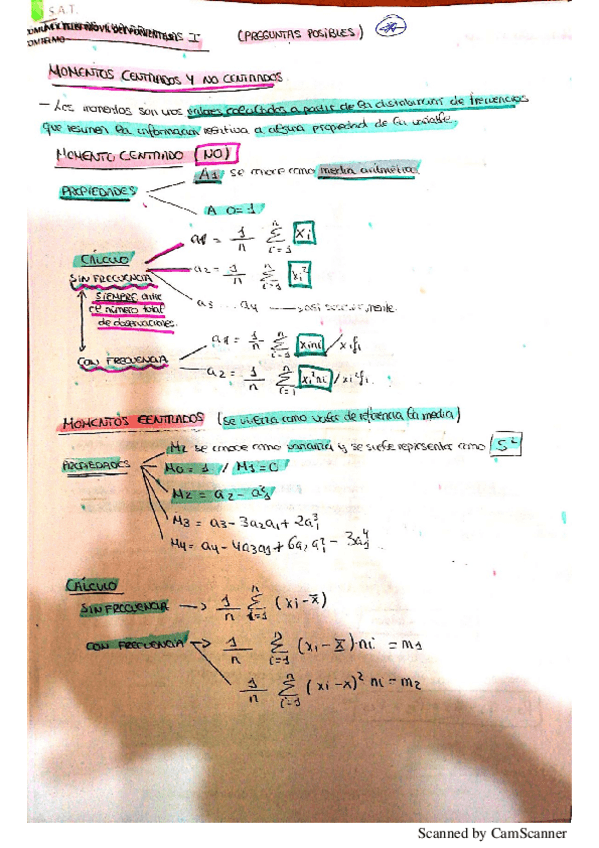 S.A.T.
(PREGUNTAS POSIBLES)
MOMENTOS CENTRADOS Y NO CENTRADOS
- Los momentos son unos valores calculados a partir de la distribución de frecuencias
que resumen la información relativa a alguna propiedad de la variable.
MOMENTO CENTRADO (NO)
PROPIEDADES
A1 se conoce como media aritmética.
A 0 = 1
CÁLCULO
SIN FRECUENCIA
SIEMPRE entre
el número total
de observaciones.
a1 = 1/n Σ i=1 n xi
a2 = 1/n Σ i=1 n xi²
a3 ... a4 → así sucesivamente.
CON FRECUENCIA
a1 = 1/n Σ i=1 n xi ni / xi fi
a2 = 1/n Σ i=1 n xi² ni / xi² fi
MOMENTOS CENTRADOS (se utiliza como valor de referencia la media)
PROPIEDADES
M2 se conoce como varianza y se suele representar como S²
M0 = 1 // M1 = 0
M2 = a2 - a1²
M3 = a3 - 3a2a1 + 2a1³
M4 = a4 - 4a3a1 + 6a2a1² - 3a1⁴
CÁLCULO
SIN FRECUENCIA → 1/n Σ i=1 n (xi - x̄)
CON FRECUENCIA → 1/n Σ i=1 n (xi - x̄) · ni = m1
1/n Σ i=1 n (xi - x)² ni = m2
Scanned by CamScanner